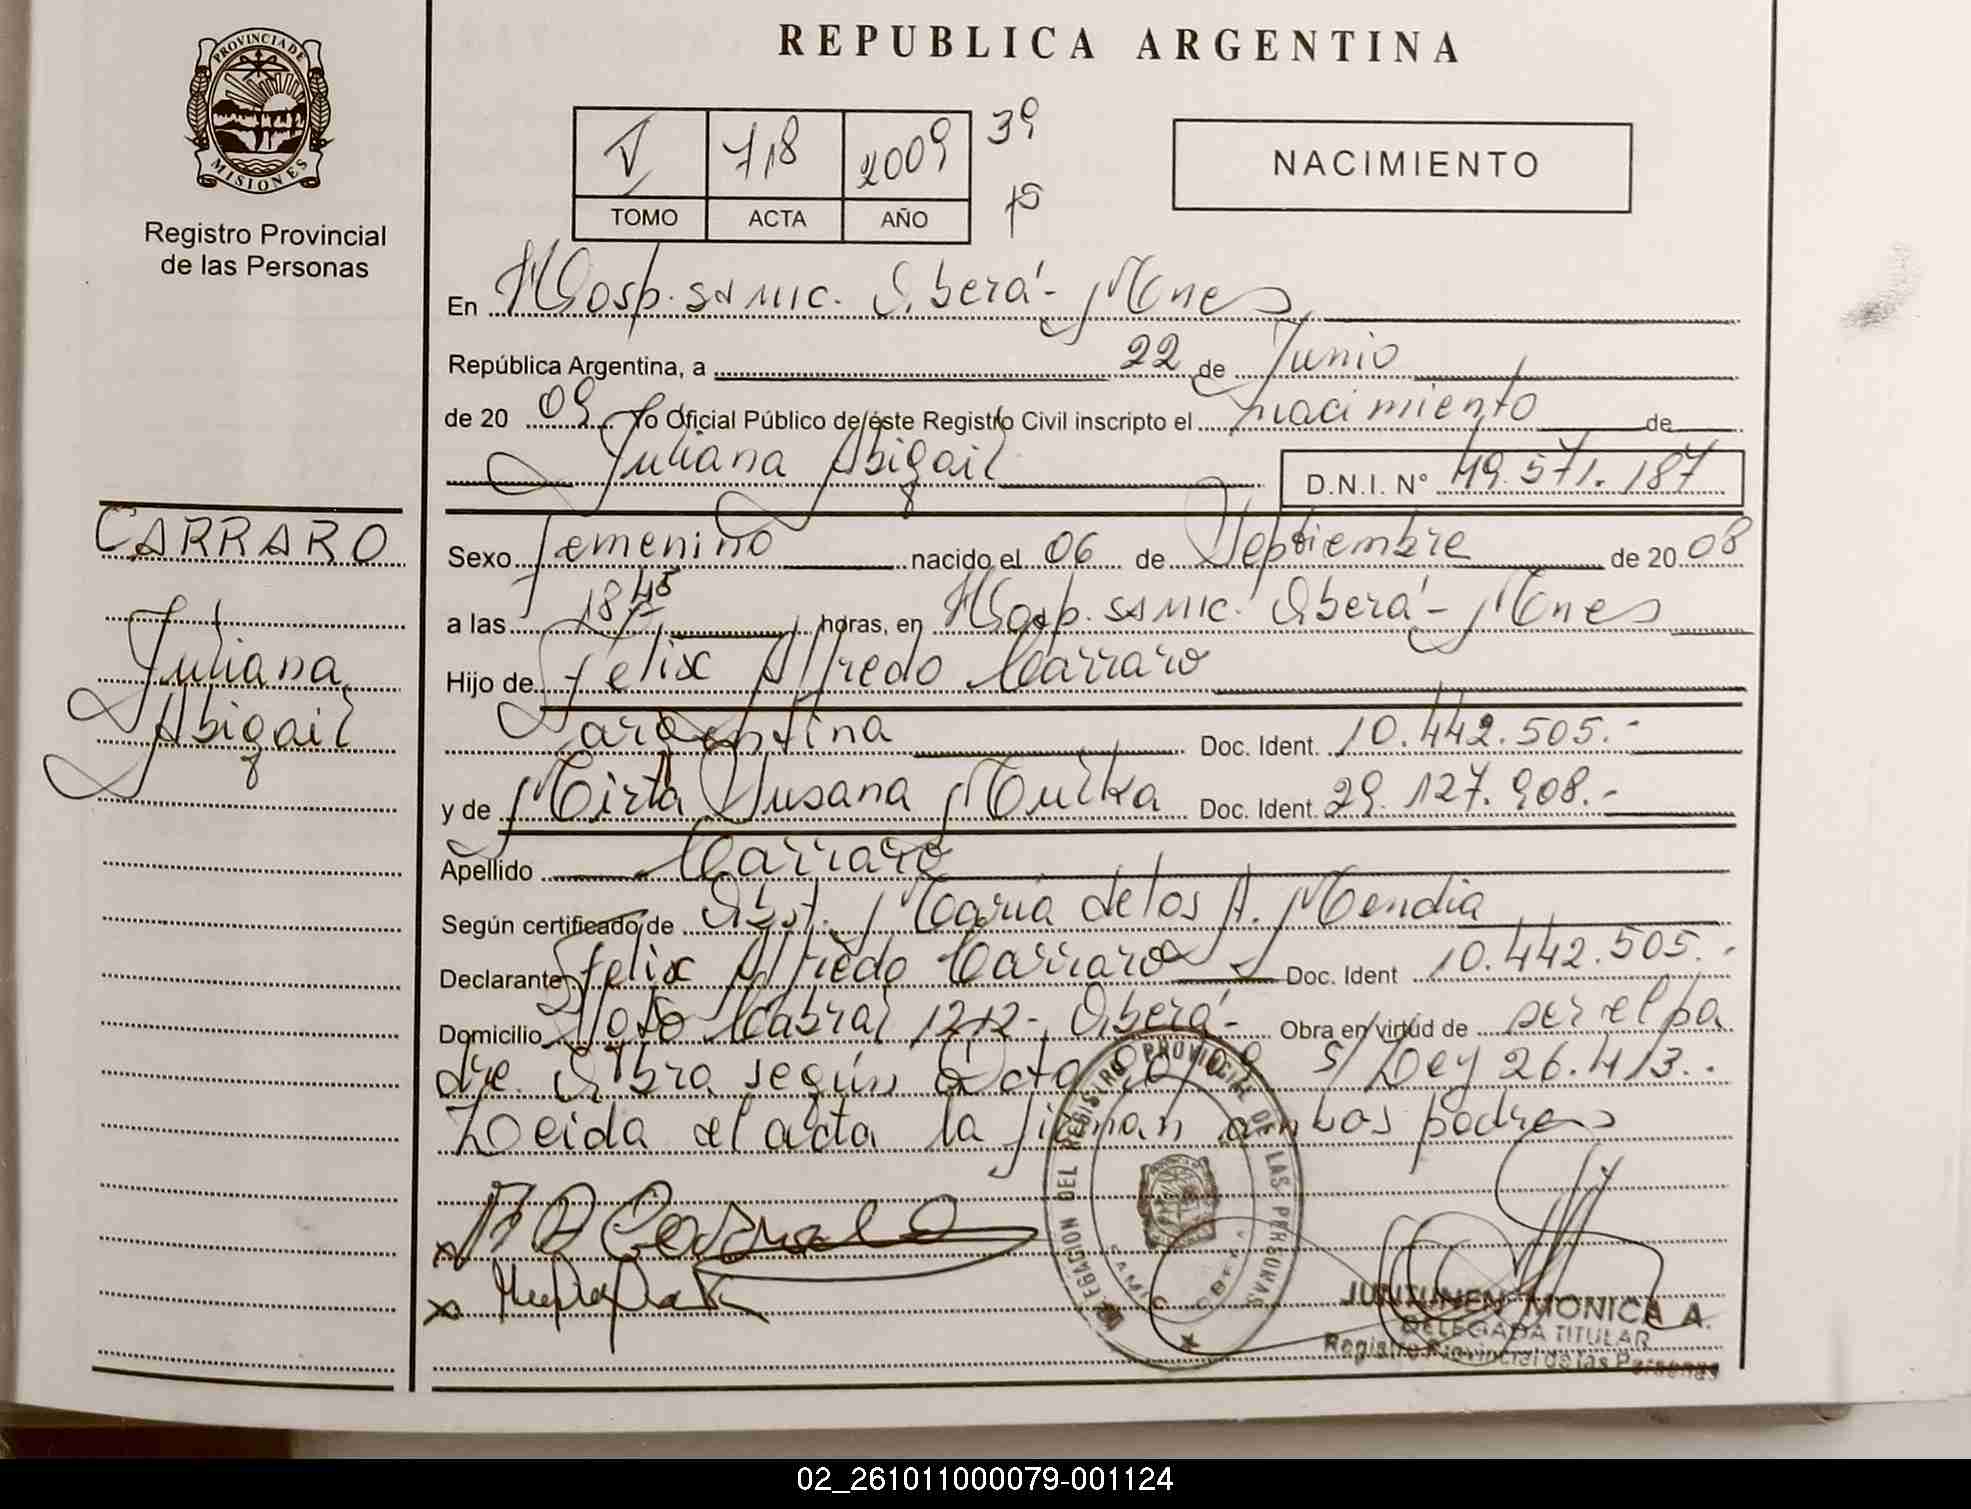 PROVINCIA DE
MISIONES
Registro Provincial
de las Personas
REPUBLICA ARGENTINA
I 718 2009 39
TOMO ACTA AÑO 75
NACIMIENTO
En Hosp. SAMIC. Oberá - Mnes
República Argentina, a 22 de Junio
de 20 09 Yo Oficial Público de éste Registro Civil inscripto el nacimiento de
Juliana Abigail D.N.I. N° 49.571.187
CARRARO
Juliana
Abigail
Sexo femenino nacido el 06 de Septiembre de 20 08
a las 18 45 horas, en Hosp. SAMIC. Oberá - Mnes
Hijo de Felix Alfredo Carraro
argentina Doc. Ident. 10.442.505.-
y de Mirta Susana Doc. Ident. 29.127.908.-
Apellido Carraro
Según certificado de Obst. María de los A. Mendia
Declarante Felix Alfredo Carraro Doc. Ident 10.442.505.-
Domicilio Cabral 1212 - Oberá - Obra en virtud de ser el pa
dre. Obra según s/ Ley 26.413..
Leida el acta la firman ambos padres
DELEGACION DEL REGISTRO PROVINCIAL DE LAS PERSONAS
MONICA A.
DELEGADA TITULAR
Registro Provincial de las Personas
02_261011000079-001124